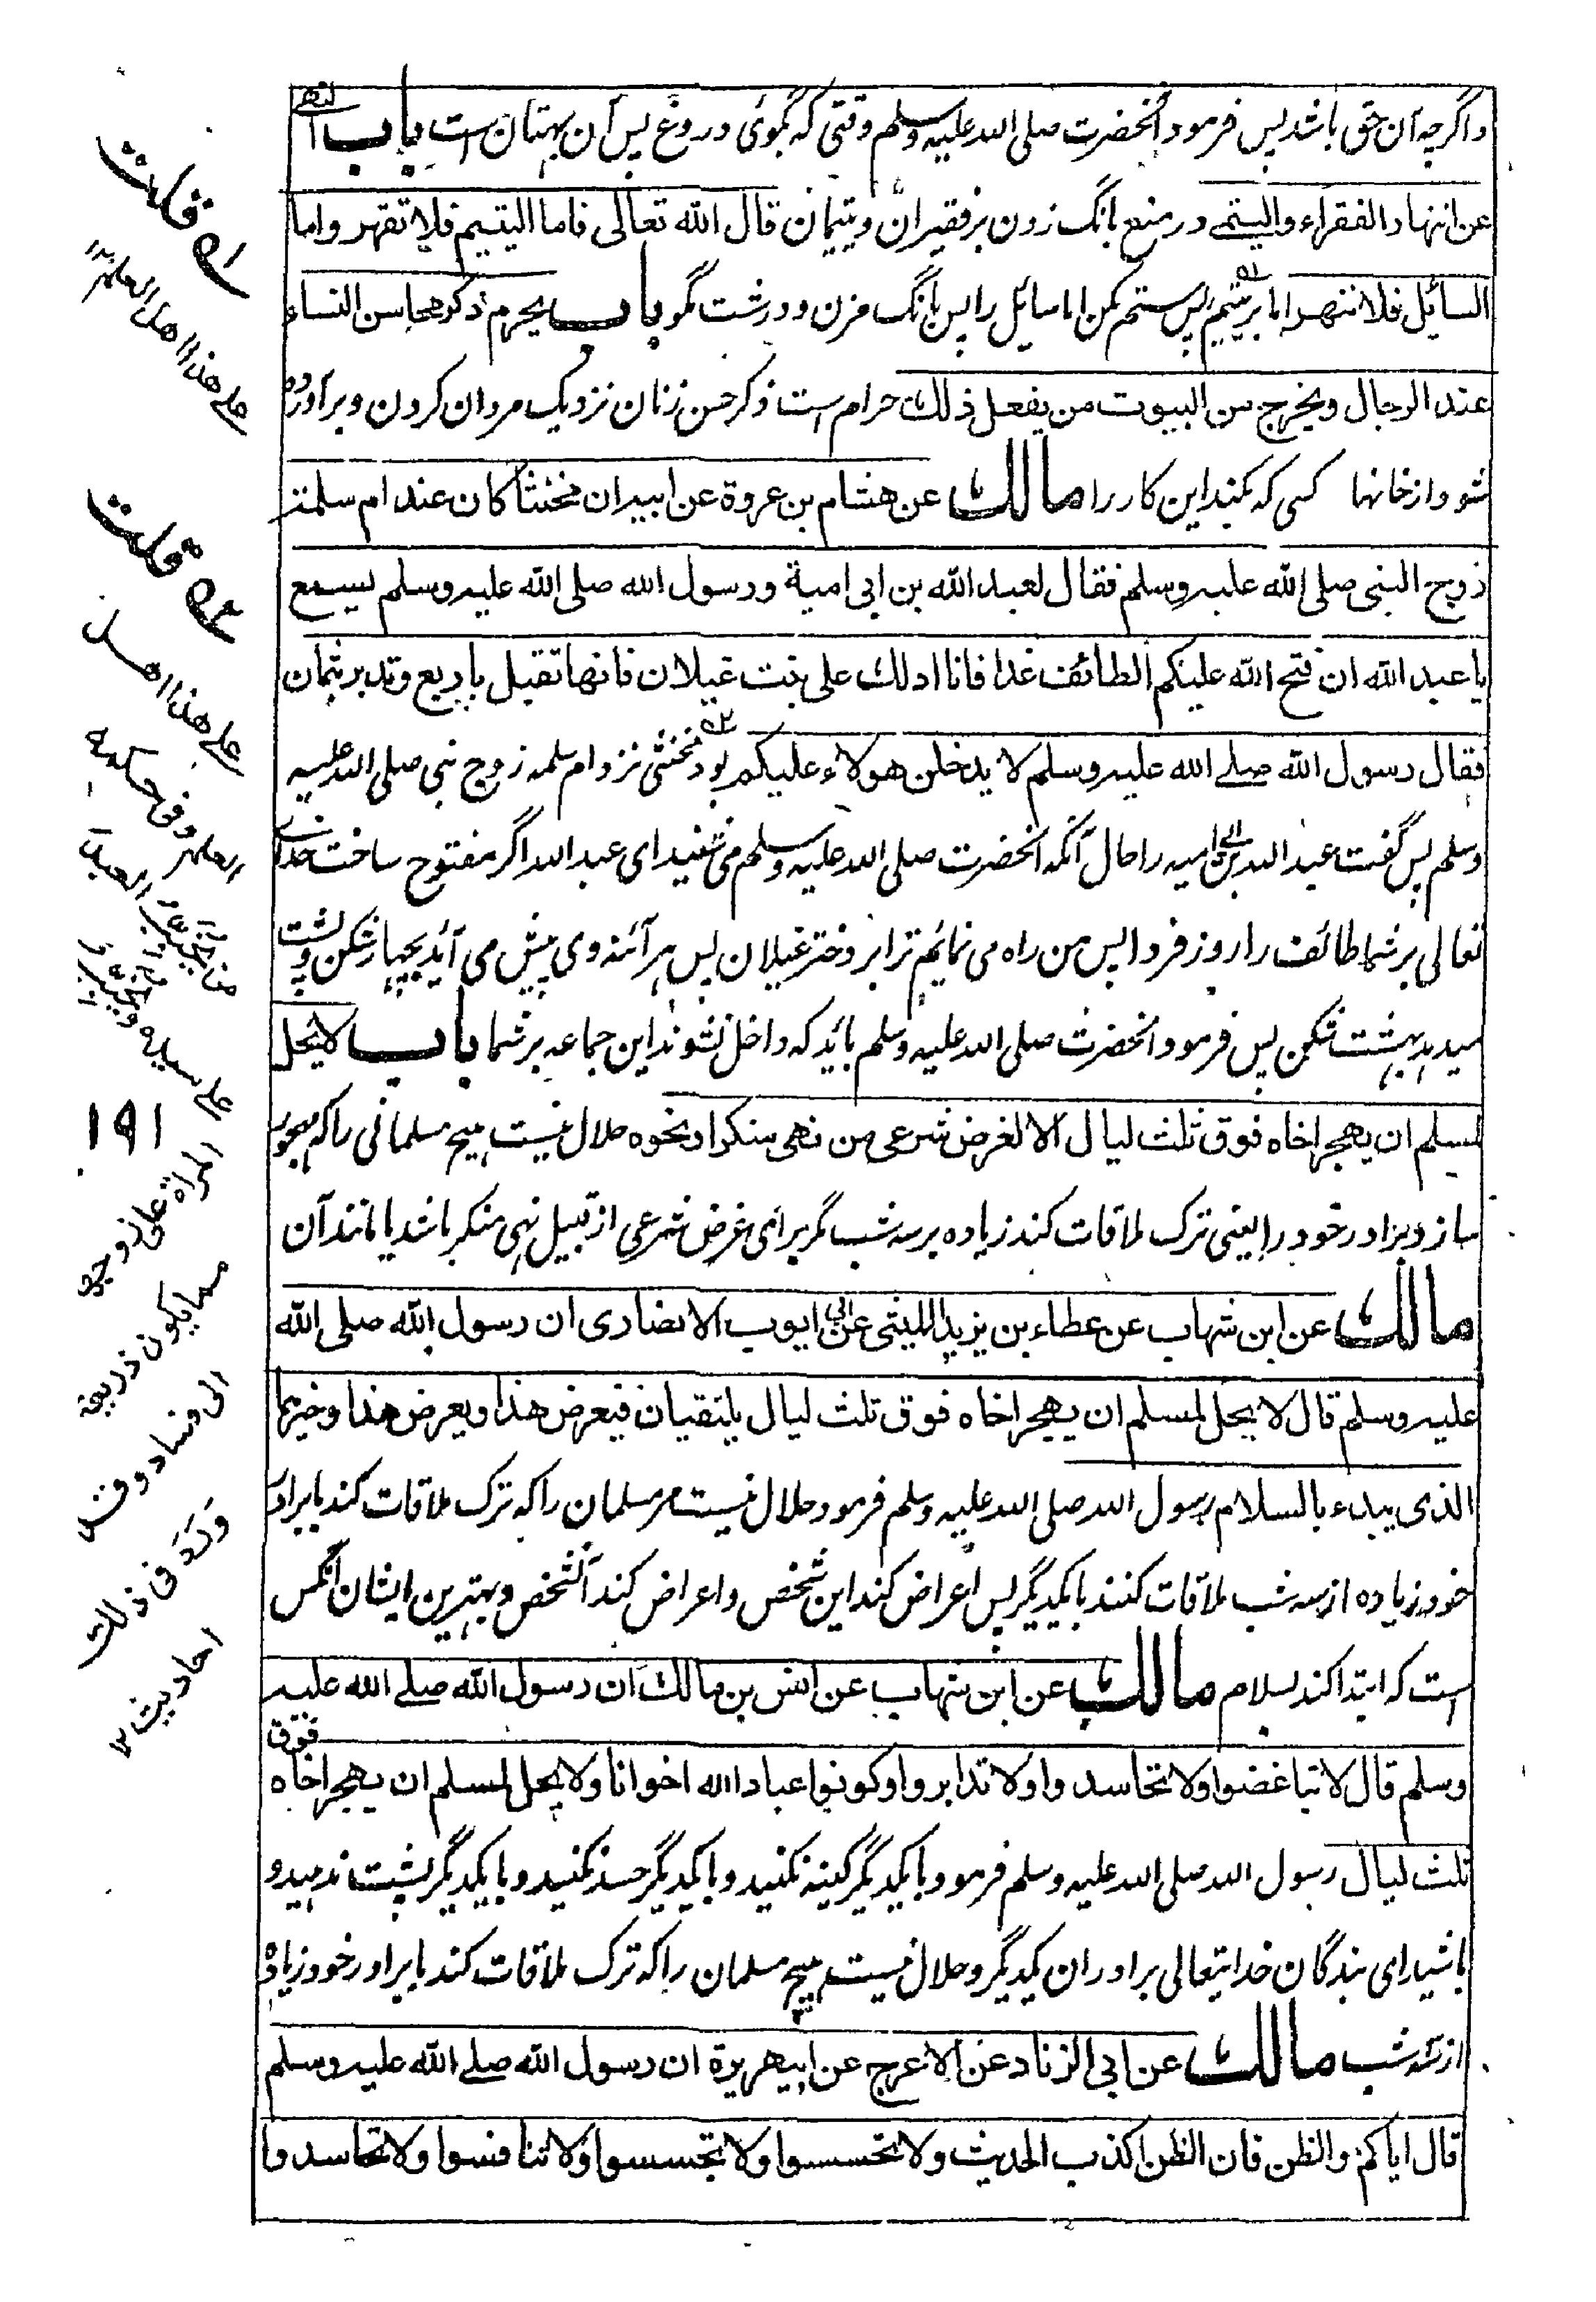 واگرچه آن حق باشد پس فرمود آنحضرت صلی الله علیه وسلم وقتی که بگوئی دروغ پس آن بهتان است باب النهی
عن انتهاد الفقراء والیتمے در منع بانگ زدن بر فقیران ویتیمان قال الله تعالی فاما الیتیم فلا تقهر واما
السائل فلا تنهر اما بر یتیم پس ستم مکن اما سائل را پس بانگ مزن و درشت مگو باب یحرم ذکر محاسن النساء
عند الرجال ویخرج من البیوت من یفعل ذلك حرام است ذکر حسن زنان نزدیک مردان کردن وبرآورده
شود از خانها کسی که بکند این کار را مالك عن هشام بن عروة عن ابیه ان مخنثا کان عند ام سلمة
زوج النبی صلی الله علیه وسلم فقال لعبد الله بن ابی امیة ورسول الله صلی الله علیه وسلم یسمع
یا عبد الله ان فتح الله علیکم الطائف غدا فانا ادلك علی بنت غیلان فانها تقبل باربع وتدبر بثمان
فقال رسول الله صلے الله علیه وسلم لا یدخلن هولاء علیکم بود مخنثی نزد ام سلمه زوج نبی صلی الله علیه
وسلم پس گفت عبد الله بن ابی امیه را حال آنکه آنحضرت صلی الله علیه وسلم می شنید ای عبد الله اگر مفتوح ساخت خدای
تعالی بر شما طائف را روز فردا پس من راه می نمایم ترا بر دختر غیلان پس هر آئنه وی پیش می آید بچهار شکن وپشت
میدهد بهشت شکن پس فرمود آنحضرت صلی الله علیه وسلم باید که داخل نشوند این جماعه بر شما باب لا یحل
لمسلم ان یهجر اخاه فوق ثلث لیال الا لغرض شرعی من نهی منکر او نحوه حلال نیست هیچ مسلمانی را که مهجور
سازد برادر خود را یعنی ترک ملاقات کند زیاده بر سه شب مگر برای غرض شرعی از قبیل نهی منکر باشد یا مانند آن
مالك عن ابن شهاب عن عطاء بن یزید اللیثی عن ابی ایوب الانصاری ان رسول الله صلی الله
علیه وسلم قال لا یحل لمسلم ان یهجر اخاه فوق ثلث لیال یلتقیان فیعرض هذا ویعرض هذا وخیرهما
الذی یبدء بالسلام رسول الله صلی الله علیه وسلم فرمود حلال نیست مر مسلمان را که ترک ملاقات کند با برادر
خود زیاده از سه شب ملاقات کنند با یکدیگر پس اعراض کند این شخص واعراض کند آنشخص وبهترین ایشان آنکس
است که ابتدا کند بسلام مالك عن ابن شهاب عن انس بن مالك ان رسول الله صلے الله علیه
وسلم قال لا تباغضوا ولا تحاسدوا ولا تدابروا وکونوا عباد الله اخوانا ولا یحل لمسلم ان یهجر اخاه فوق
ثلث لیال رسول الله صلی الله علیه وسلم فرمود با یکدیگر کینه نکنید وبا یکدیگر حسد نکنید وبا یکدیگر پشت ندهید و
باشید ای بندگان خدایتعالی برادران یکدیگر وحلال نیست هیچ مسلمان را که ترک ملاقات کند با برادر خود زیاده
از سه شب مالك عن ابی الزناد عن الاعرج عن ابیهریرة ان رسول الله صلے الله علیه وسلم
قال ایاکم والظن فان الظن اکذب الحدیث ولا تحسسوا ولا تجسسوا ولا تنافسوا ولا تحاسدوا
۱ه قلت
علی هذا اهل العلم ۱۲
۲ه قلت
علی هذا اهل
العلم وفی حکمه
علی سیده و
۱۹۱
المراة علی زوجها
مما یکون ذریعة
الی فساد وقد
ورد فی ذلك
احادیث ۱۲